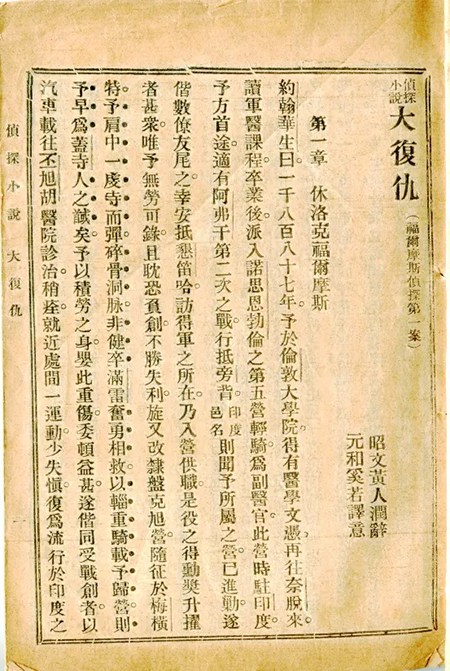 偵探小說 大復仇（福爾摩斯偵探第一案）
昭文黃人潤辭
元和奚若譯意
第一章　休洛克福爾摩斯
約翰華生曰。一千八百八十七年。予於倫敦大學院。得有醫學文憑。再往奈脫來。
讀軍醫課程。卒業後。派入諾思恩勃倫之第五營輕騎。爲副醫官。此營時駐印度。
予方首途。適有阿弗干第二次之戰。行抵旁背。印度邑名則聞予所屬之營。已進動。遂
偕數僚友尾之。幸安抵懇笛哈。訪得軍之所在。乃入營供職。是役之得勳獎升擢
者甚衆。唯予無勞可錄。且耽恐負創。不勝失利。旋又改隷盤克旭營。隨征於梅橫
特。予肩中一虔寺而彈。碎骨洞脉。非健卒滿雷奮勇相救。以輜重騎載予歸營。則
予早爲蓋寺人之馘矣。予以積勞之身。嬰此重傷。委頓益甚。遂偕同受戰創者。以
汽車載往丕旭胡醫院診治。稍痊。就近處間一運動。少失愼。復爲流行於印度之
偵探小說　大復仇